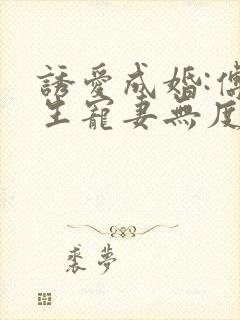 誘愛成婚:傅
生寵妻無度
裘夢